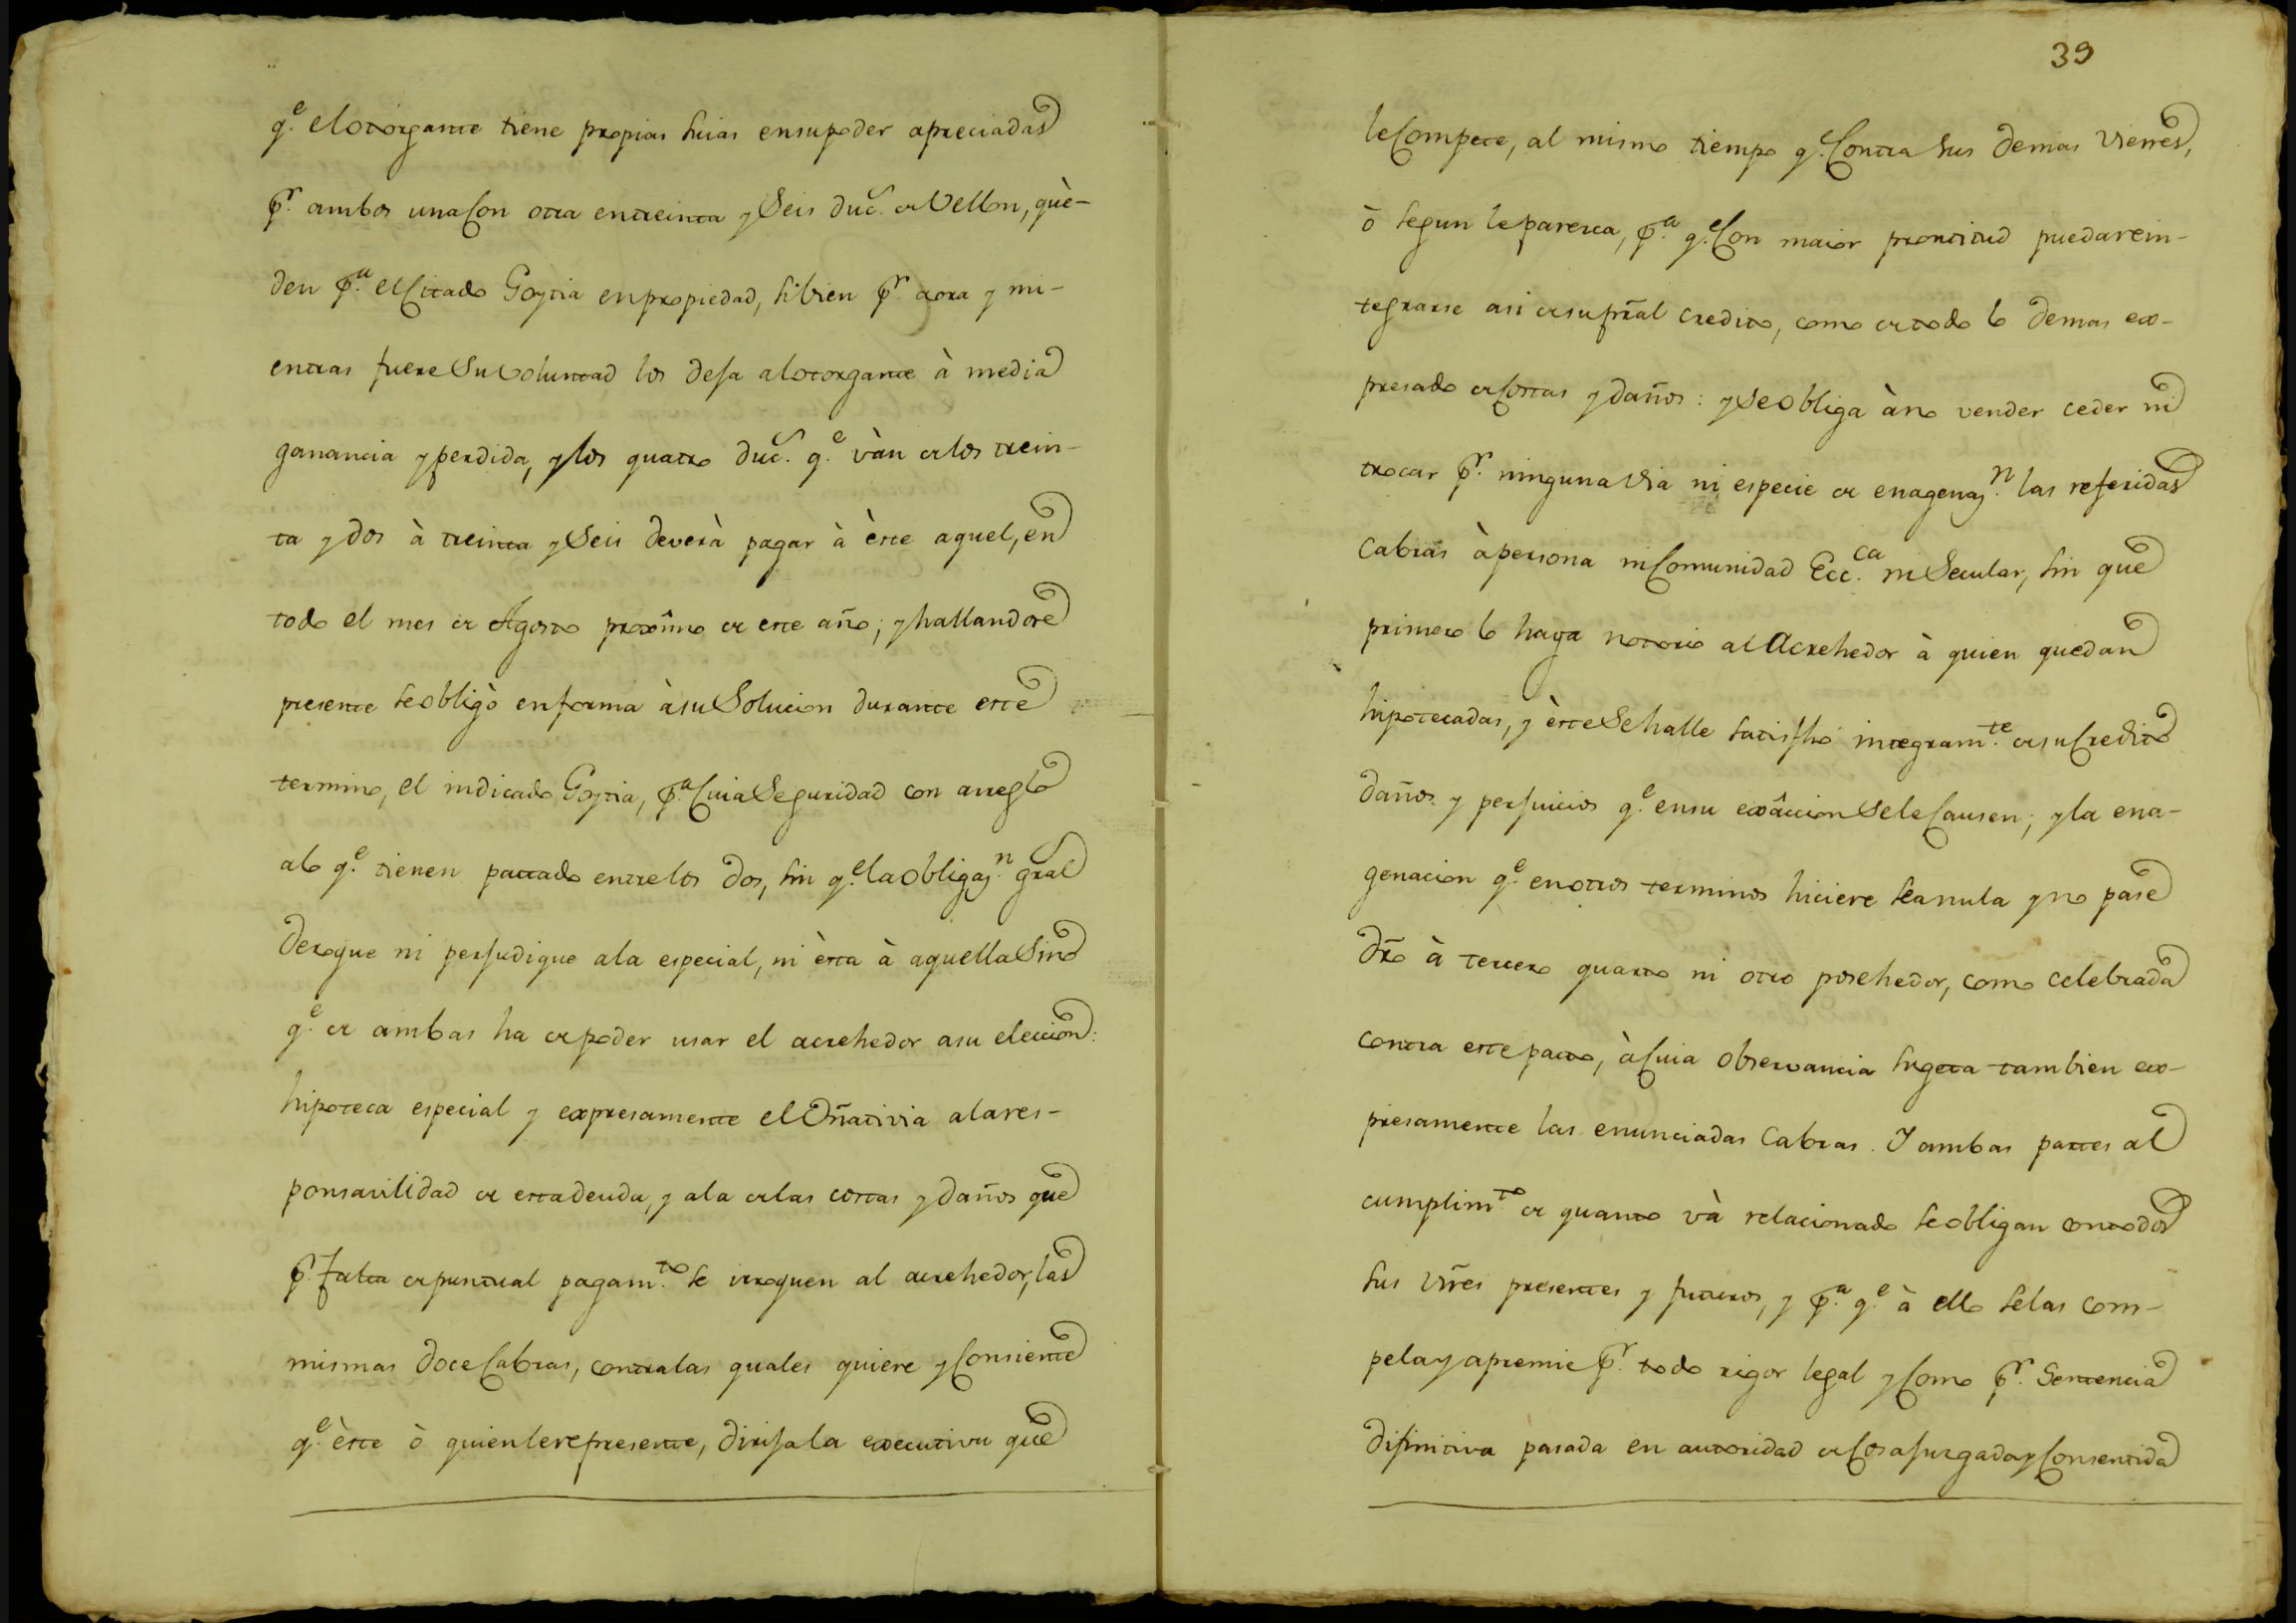 q.e el otorgante tiene propias suias en su poder apreciadas
p.r ambos una con otra en treinta y Seis duc.s de Vellon, què-
den p.a el Citado Goytia en propiedad, si bien p.r aora y mi-
entras fuere Su voluntad los deja al otorgante à media
ganancia y perdida, y los quatro duc.s q.e vàn de los trein-
ta y dos à treinta y Seis deverà pagar à èste aquel, en
todo el mes de Agosto proxîmo de este año; y hallandose
presente se obligò en forma à su Solucion durante este
termino, el indicado Goytia, p.a Cuia Seguridad con arreglo
a lo q.e tienen pactado entre los dos, sin q.e la obligaz.n gral
derogue ni perjudique a la especial, ni èsta à aquella Sino
q.e de ambas ha de poder usar el acrehedor a su eleccion:
hipoteca especial y expresamente el Oñativia a la res-
ponsavilidad de esta deuda, y a la de las costas y daños que
p.r falta de puntual pagam.to se irroguen al acrehedor, las
mismas doce Cabras, contra las quales quiere y Consiente
q.e èste ò quien le represente, dirija la executiva que
39
le Compete, al mismo tiempo q.e Contra sus demas vienes,
ò segun le paresca, p.a q.e Con maior prontitud pueda rein-
tegrarse asi de su pral credito, como de todo lo demas ex-
presado de Costas y daños: y Se obliga à no vender ceder ni
trocar p.r ninguna via ni especie de enagenaz.n las referidas
Cabras à persona ni Comunidad Ecc.ca ni Secular, sin que
primero lo haga notorio al Acrehedor à quien quedan
hipotecadas, y èste Se halle satisfho integram.te de su Credito
daños y perjuicios q.e en su exâccion Se le Causen; y la ena-
genacion q.e en otros terminos hiciere sea nula y no pase
dro à tercero quarto ni otro posehedor, como celebrada
contra este pacto, à Cuia observancia sugeta tambien ex-
presamente las enunciadas Cabras. Y ambas partes al
cumplim.to de quanto và relacionado se obligan con todos
sus vnes presentes y futuros, y p.a q.e à ello se las com-
pela y apremie p.r todo rigor legal y Como p.r Sentencia
difinitiva pasada en autoridad de Cosa juzgada y Consentida